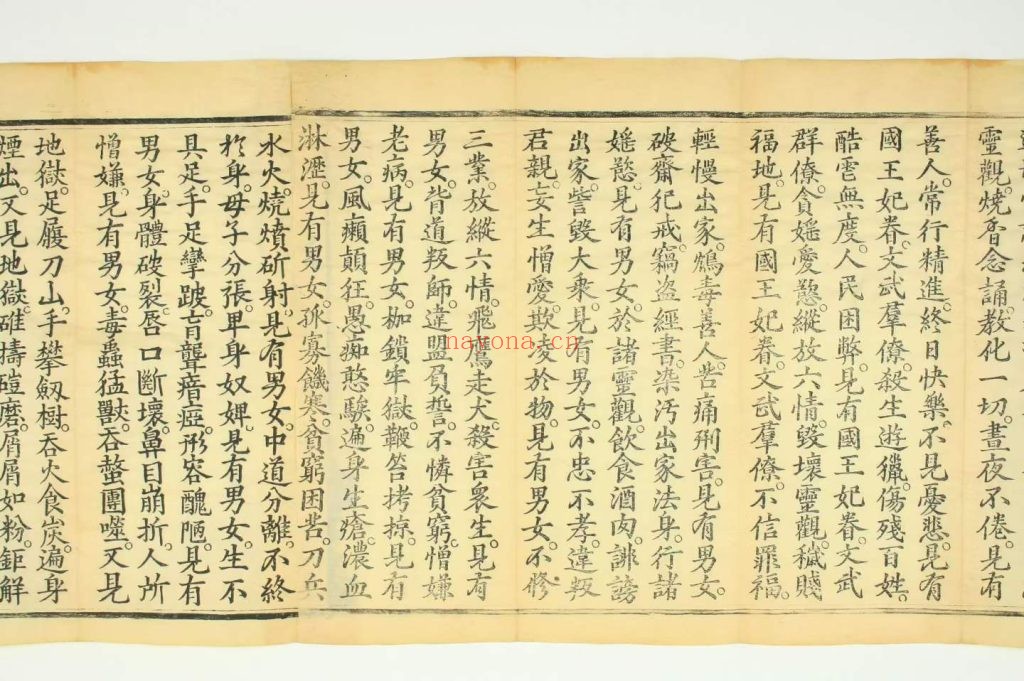 靈觀。燒香念誦。教化一切。晝夜不倦。見有
善人。常行精進。終日快樂。不見憂悲。見有
國王妃眷。文武羣僚。殺生遊獵。傷殘百姓。
酷害無度。人民困弊。見有國王妃眷。文武
群僚。貪婬愛慾。縱放六情。毀壞靈觀。穢賤
福地。見有國王妃眷。文武羣僚。不信罪福。
輕慢出家。鴆毒善人。苦痛刑害。見有男女。
破齋犯戒。竊盗經書。染汚出家法身。行諸
婬慾。見有男女。於諸靈觀。飲食酒肉。誹謗
出家。訾毀大乘。見有男女。不忠不孝。違叛
君親。妄生憎愛。欺凌於物。見有男女。不修
三業。放縱六情。飛鷹走犬。殺害衆生。見有
男女。背道叛師。違盟負誓。不憐貧窮。憎嫌
老病。見有男女。枷鎖牢獄。鞭笞拷掠。見有
男女。風癩顛狂。愚痴憨騃。遍身生瘡。濃血
淋瀝。見有男女。孤寡饑寒。貧窮困苦。刀兵
水火。燒燌斫射。見有男女。中道分離。不終
於身。母子分張。卑身奴婢。見有男女。生不
具足。手足攣跛。盲聾瘖瘂。形容醜陋。見有
男女。身體破裂。唇口斷壞。鼻目崩折。人所
憎嫌。見有男女。毒蟲猛獸。吞螫團噬。又見
地獄。足履刀山。手攀劒樹。吞火食炭。遍身
煙出。又見地獄。碓擣磑磨。屑屑如粉。鉅解
nayona.cn